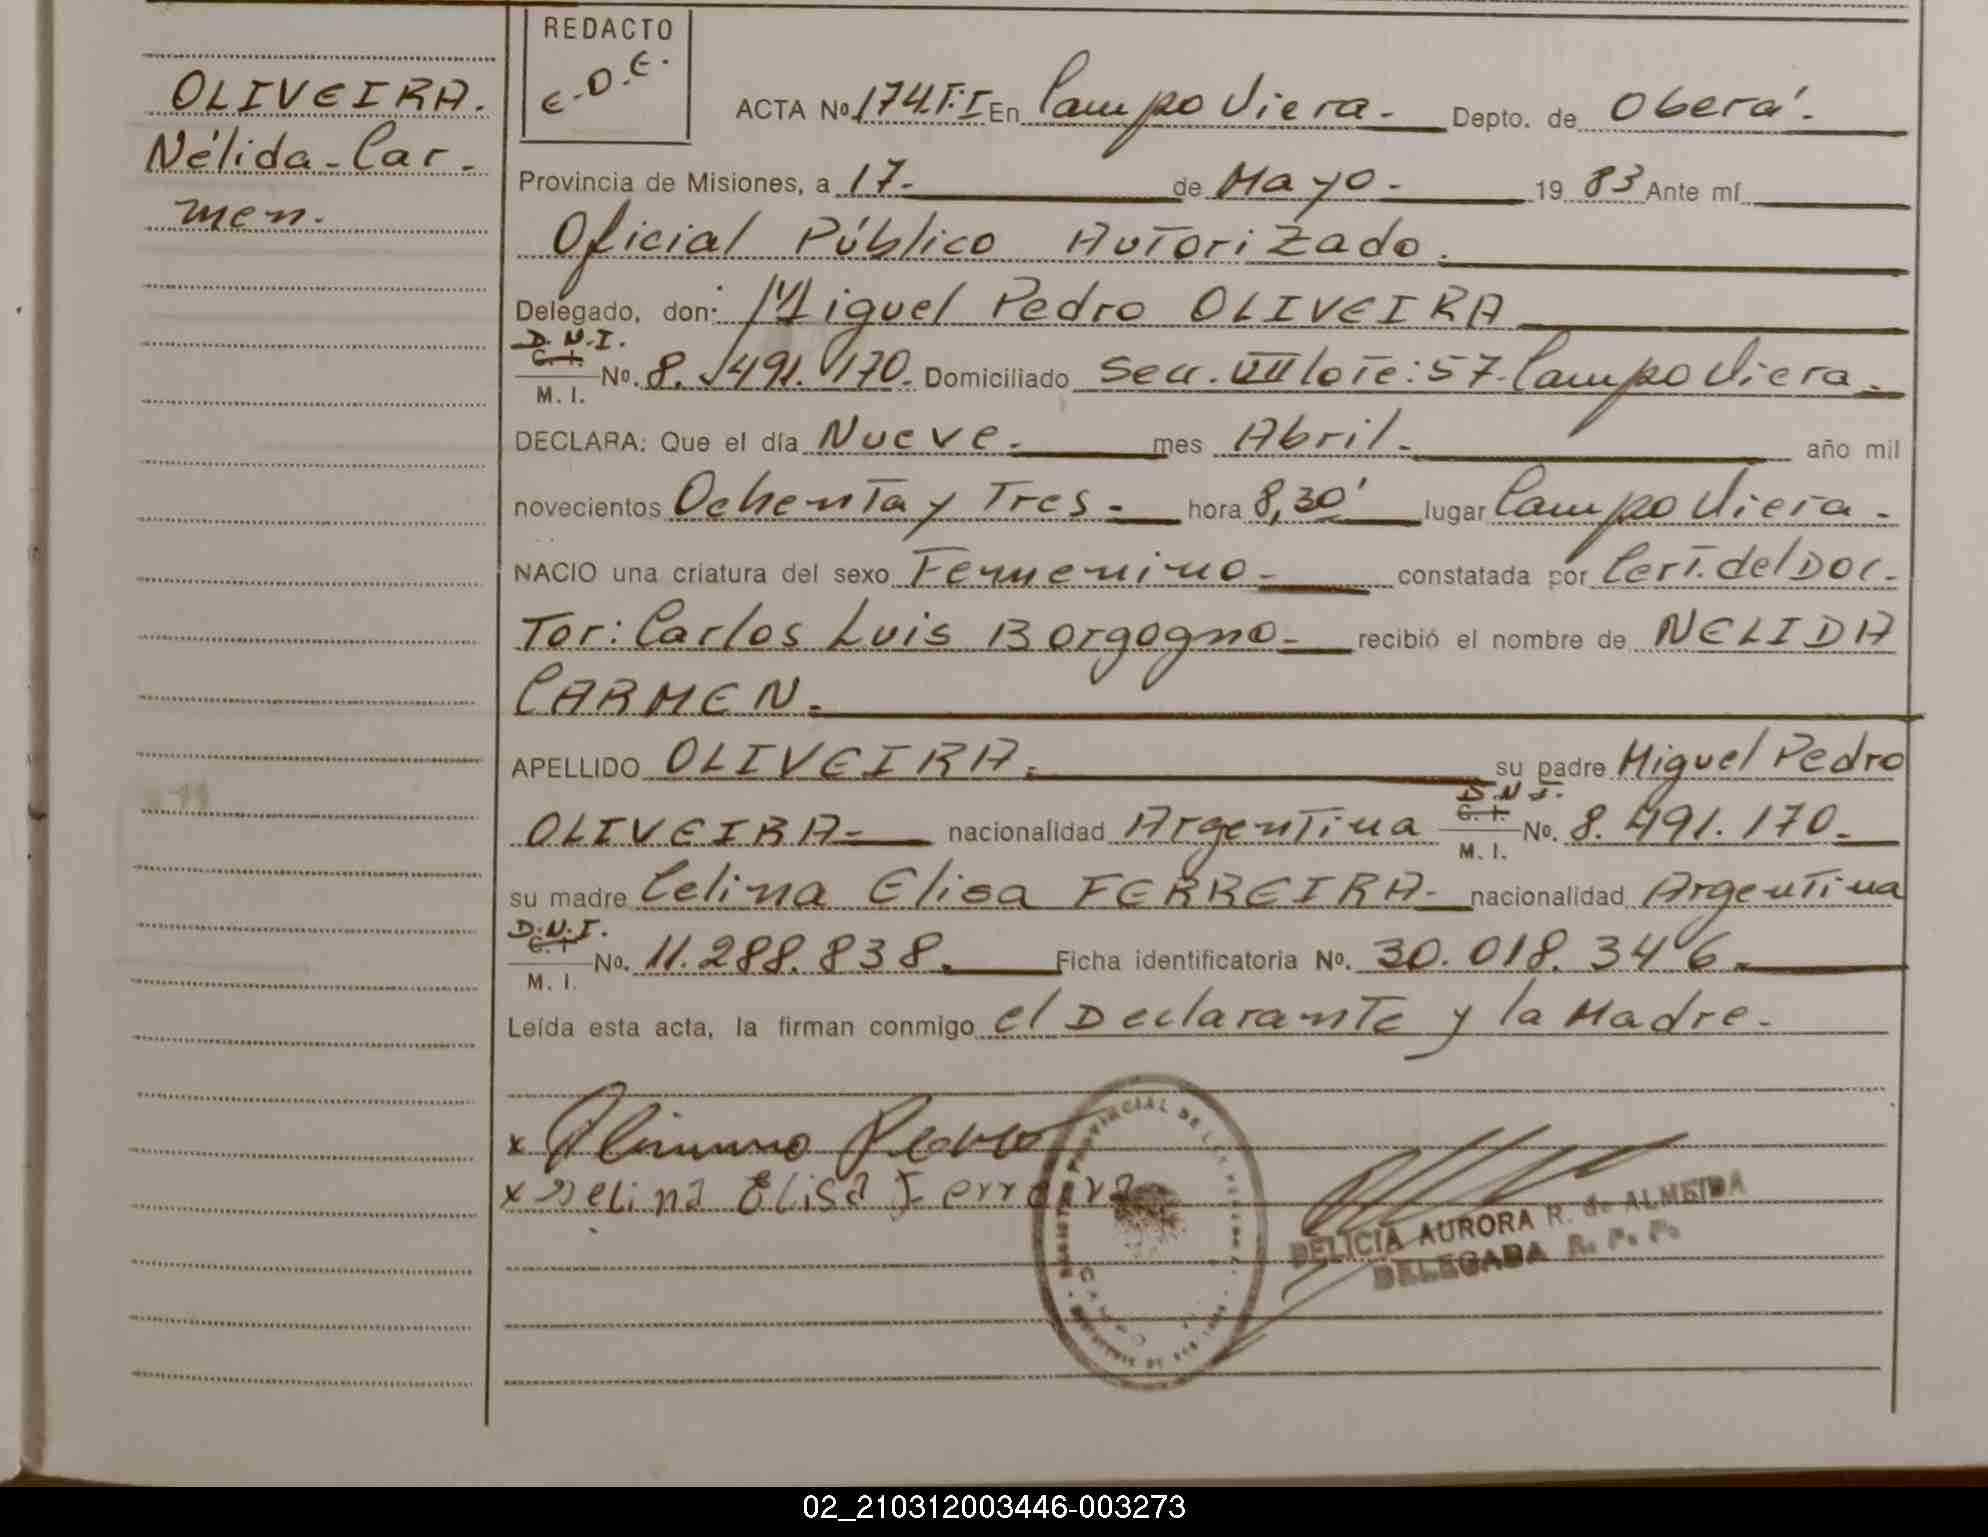 OLIVEIRA.
Nélida-Car-
men.
REDACTO
E.D.E.
ACTA Nº 174.T:I En Campo Viera.- Depto. de Oberá.-
Provincia de Misiones, a 17.- de Mayo.- 19 83 Ante mí
Oficial Público Autorizado.
Delegado, don: Miguel Pedro OLIVEIRA
D.N.I.
C.I.
M. I. Nº. 8.491.170. Domiciliado Secc. VIII lote: 57. Campo Viera.-
DECLARA: Que el día Nueve.- mes Abril.- año mil
novecientos Ochenta y Tres.- hora 8,30' lugar Campo Viera.-
NACIO una criatura del sexo Femenino.- constatada por Cert. del Doc-
Tor: Carlos Luis Borgogno.- recibió el nombre de NELIDA
CARMEN.-
APELLIDO OLIVEIRA.- su padre Miguel Pedro
OLIVEIRA.- nacionalidad Argentina D.N.I. C.I. M. I. Nº. 8.491.170.-
su madre Celina Elisa FERREIRA.- nacionalidad Argentina
D.N.I.
C.I.
M. I. Nº. 11.288.838.- Ficha identificatoria Nº. 30.018.346.-
Leída esta acta, la firman conmigo el Declarante y la Madre.-
x Pedro
x Selina Elisa Ferreira
PROVINCIAL DE LAS PERSONAS
DELICIA AURORA R. de ALMEIDA
DELEGADA R. P. P.
02_210312003446-003273